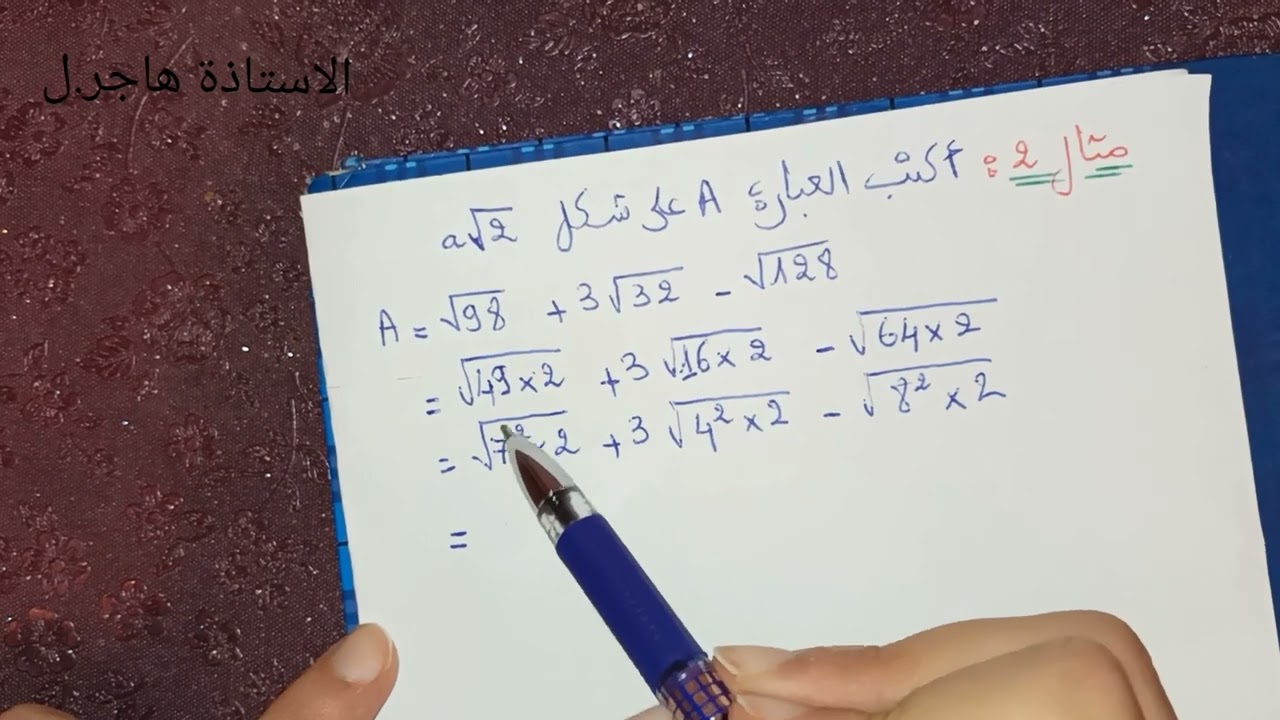 الاستاذة هاجر.ل
مثال 2: أكتب العبارة A على شكل a√2
A = √98 + 3√32 - √128
= √49×2 + 3√16×2 - √64×2
= √7²×2 + 3√4²×2 - √8²×2
=